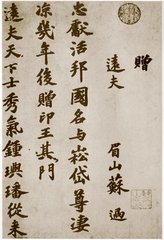 贈
遠夫
眉山蘇過
忠獻活邦國名与崧岱尊淒
涼幾年後贈印王其門
遠夫天下士秀氣鍾璵璠從來